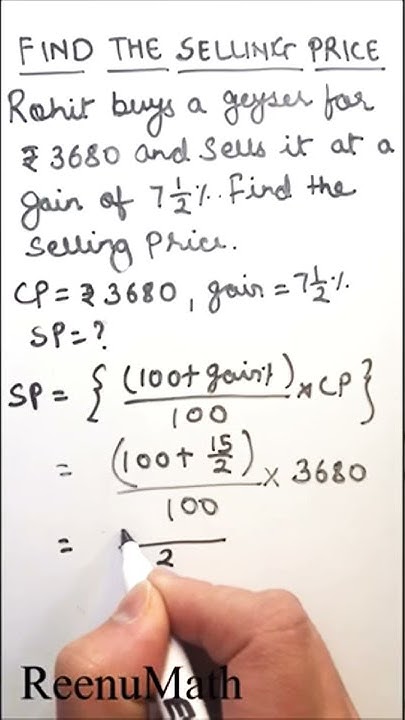 FIND THE SELLING PRICE
Rohit buys a geyser for
₹ 3680 and sells it at a
gain of 7 1/2 %. Find the
selling Price.
CP = ₹ 3680, gain = 7 1/2 %
SP = ?
SP = { (100 + gain%) / 100 × CP }
= (100 + 15/2) / 100 × 3680
= / 2
ReenuMath